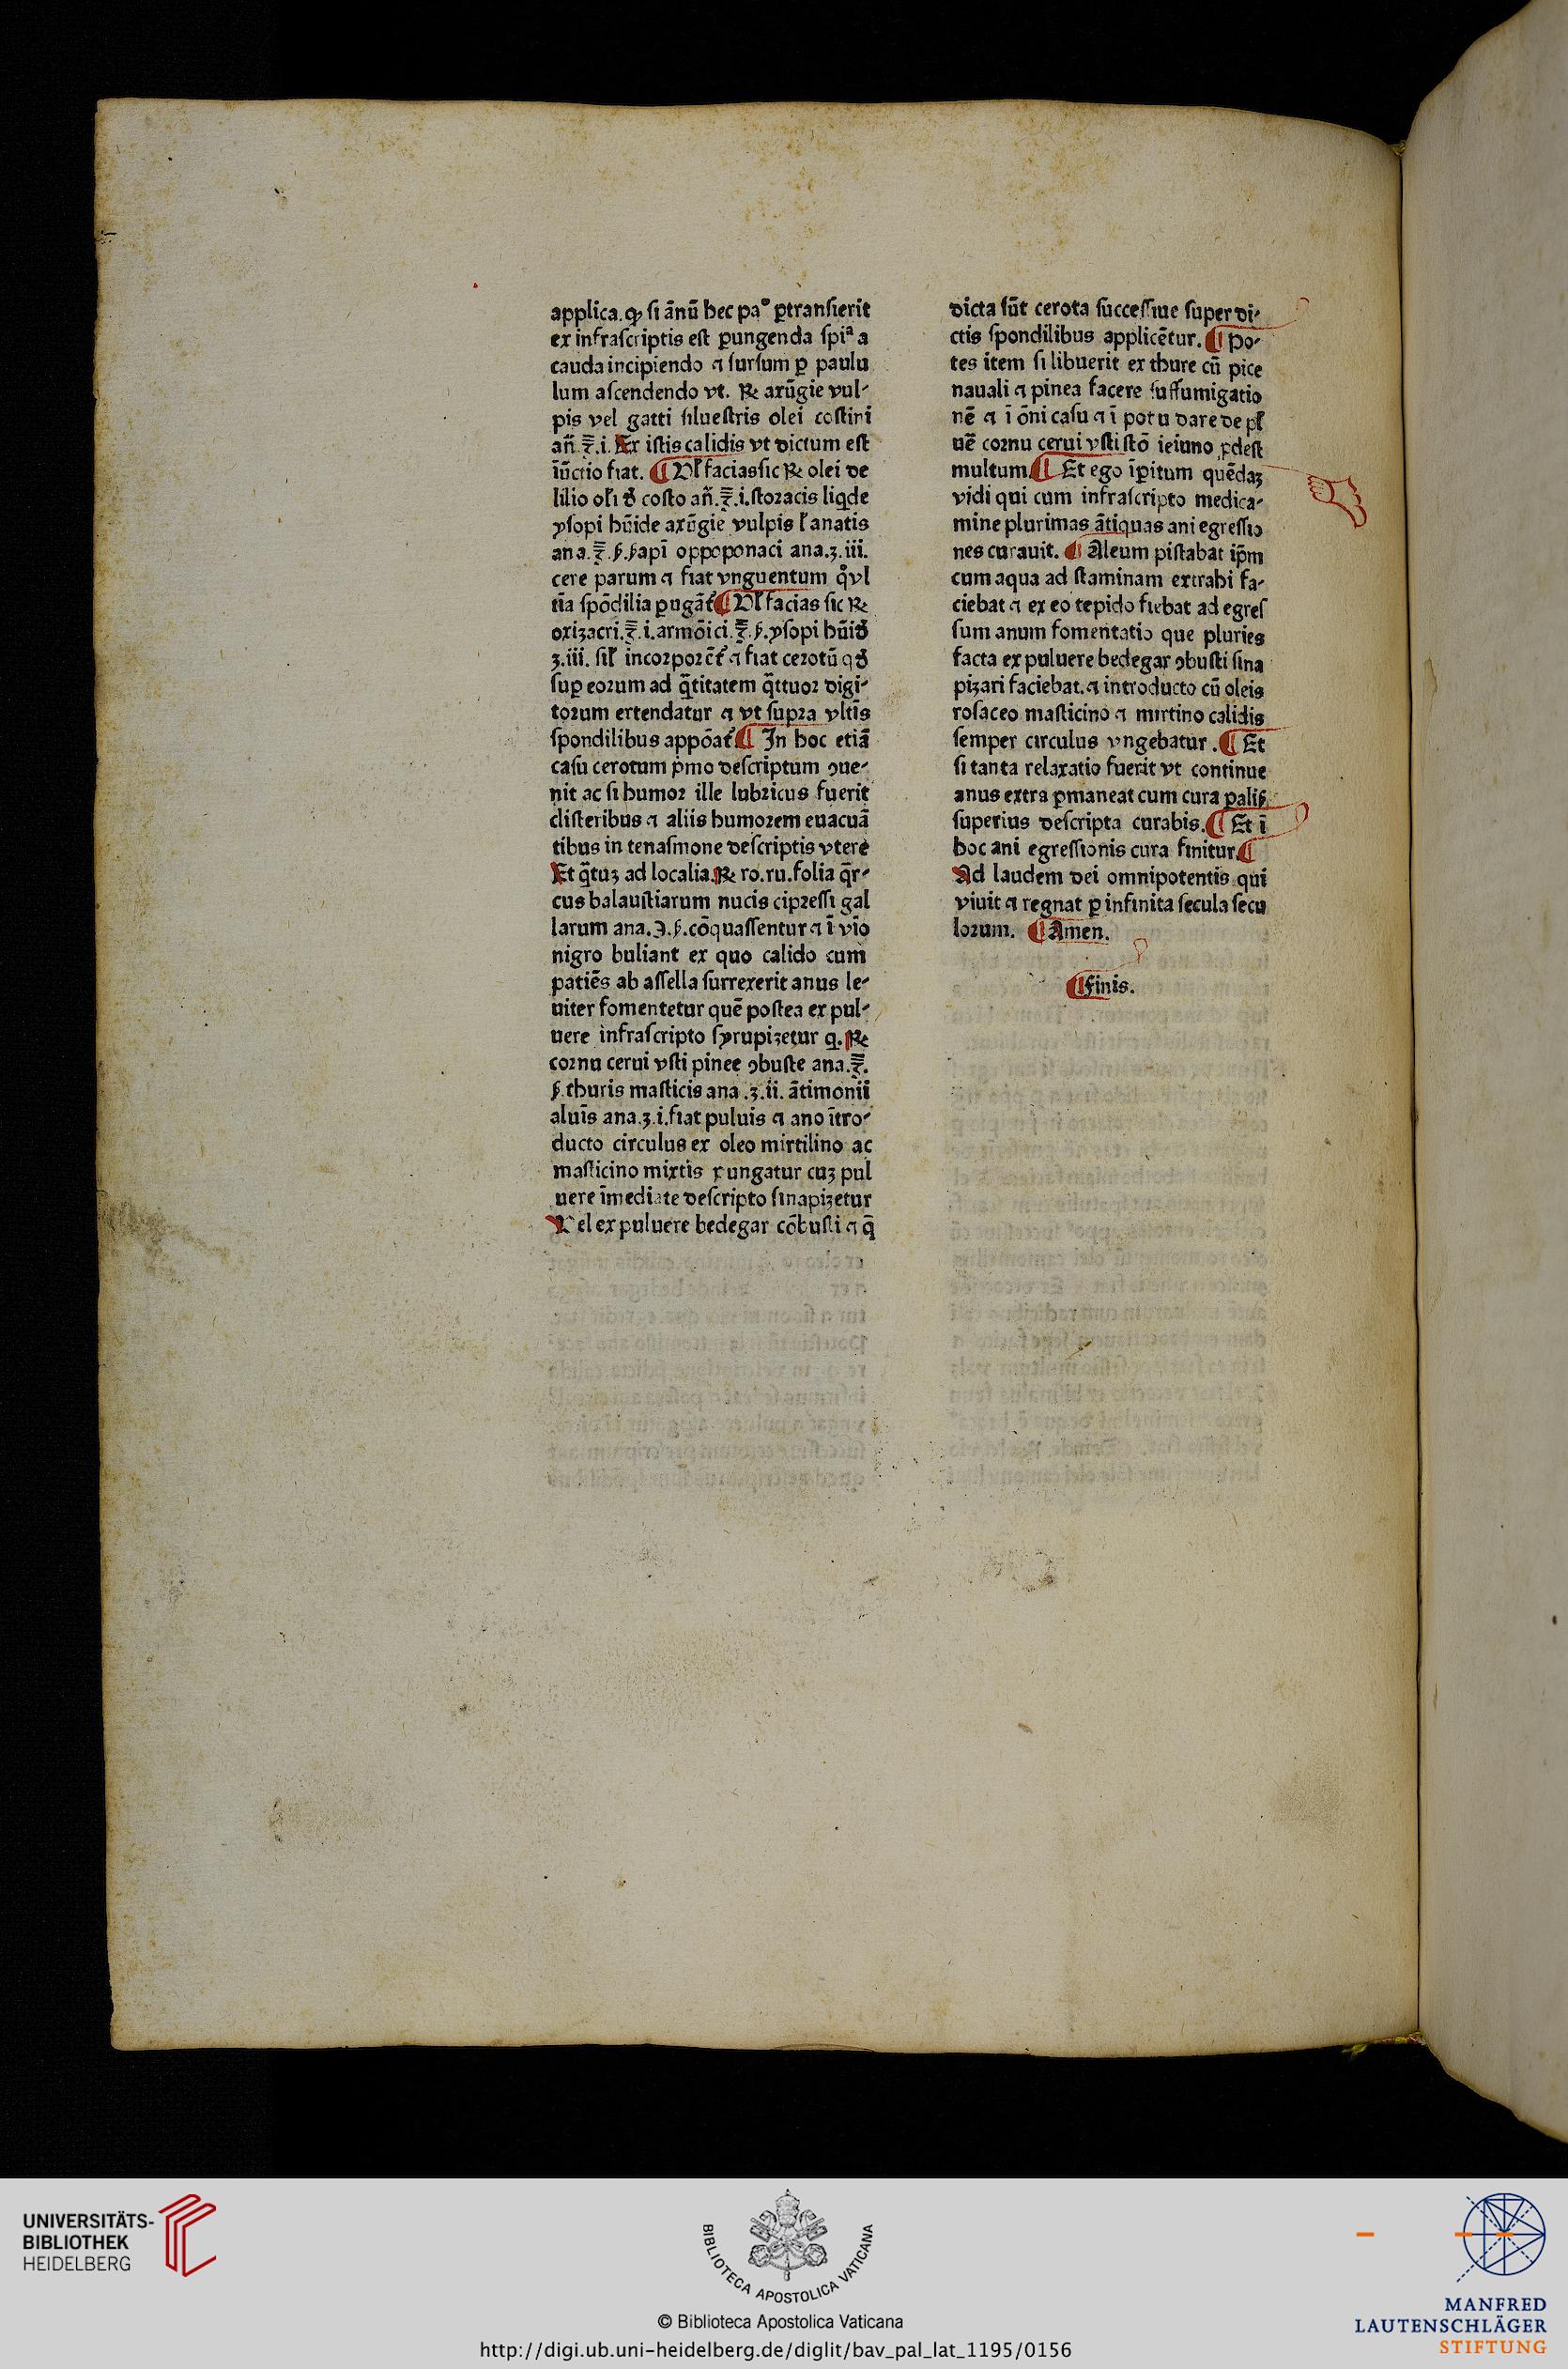 applica. ꝙ ſi ānū hec paᵒ ꝑtranſierit
ex infraſcriptis eſt ꝑungenda ſpiᵃ a
cauda incipiendo ⁊ ſurſum ꝑ paulu
lum aſcendendo vt. ℞ axūgie vul⸗
pis vel gatti ſilueſtris olei coſtini
an̄.℥.i. Ex iſtis calidis vt dictum eſt
īūctio fiat. ¶ Vl̓ facias ſic ℞ olei de
lilio ol̓i d̓ coſto an̄.℥.i.ſtoracis liq̇de
yſopi hūide axūgie vulpis l̓ anatis
ana.℥.ꝭ.ẜapī oppoponaci ana.ʒ.iii.
cere parum ⁊ fiat vnguentum q̊ vl
tīa ſpōdilia ꝑūgāt̓ ¶ Vl̓ facias ſic ℞
oxizacri.℥.i.armōici.℥.ꝭ.yſopi hūid̓
ʒ.iii. ſil̓ incorporēt̓ ⁊ fiat cerotū qd̓
ſuꝑ eorum ad q̄titatem q̄ttuor digi⸗
torum extendatur ⁊ vt ſupra vltīs
ſpondilibus appōat̓ ¶ In hoc etiā
caſu cerotum pͥmo deſcriptum ꝯue⸗
nit ac ſi humor ille lubricus fuerit
cliſteribus ⁊ aliis humorem euacuā
tibus in tenaſmone deſcriptis vtere
Et q̄tuꝫ ad localia. ℞ ro.ru.folia q̄r⸗
cus balauſtiarum nucis cipreſſi gal
larum ana.℈.ꝭ.cōquaſſentur ⁊ ī vīo
nigro buliant ex quo calido cum
patiēs ab aſſella ſurrexerit anus le⸗
uiter fomentetur quē poſtea ex pul⸗
uere infraſcripto ſyrupizetur q. ℞
cornu cerui vſti pinee ꝯbuſte ana.℥.
ꝭ.thuris maſticis ana.ʒ.ii. ātimonii
aluīs ana.ʒ.i.fiat puluis ⁊ ano ītro⸗
ducto circulus ex oleo mirtilino ac
maſticino mixtis ꝑungatur cuꝫ pul
uere īmediate deſcripto ſinapizetur
Vel ex puluere bedegar cōbuſti ⁊ q̄
dicta ſūt cerota ſucceſſiue ſuper di⸗
ctis ſpondilibus applicētur. ¶ Po⸗
tes item ſi libuerit ex thure cū pice
nauali ⁊ pinea facere ſuffumigatio
nē ⁊ ī ōni caſu ⁊ ī potu dare de pl̓
uē cornu cerui vſti ſtō ieiuno ꝓdeſt
multum ¶ Et ego īꝑitum quēdaꝫ
vidi qui cum infraſcripto medica⸗
mine plurimas ātiquas ani egreſſio
nes curauit. ¶ Aleum piſtabat ip̄m
cum aqua ad ſtaminam extrahi fa⸗
ciebat ⁊ ex eo tepido fiebat ad egreſ
ſum anum fomentatio que pluries
facta ex puluere bedegar ꝯbuſti ſina
pizari faciebat. ⁊ introducto cū oleis
roſaceo maſticino ⁊ mirtino calidis
ſemper circulus vngebatur. ¶ Et
ſi tanta relaxatio fuerit vt continue
anus extra ꝑmaneat cum cura ꝑaliẜ
ſuperius deſcripta curabis. ¶ Et ī
hoc ani egreſſionis cura finitur. ¶
Ad laudem dei omnipotentis qui
viuit ⁊ regnat ꝑ infinita ſecula ſecu
lorum. ¶ Amen.
¶ Finis.
UNIVERSITÄTS-
BIBLIOTHEK
HEIDELBERG
BIBLIOTECA APOSTOLICA VATICANA
© Biblioteca Apostolica Vaticana
http://digi.ub.uni-heidelberg.de/diglit/bav_pal_lat_1195/0156
MANFRED
LAUTENSCHLÄGER
STIFTUNG